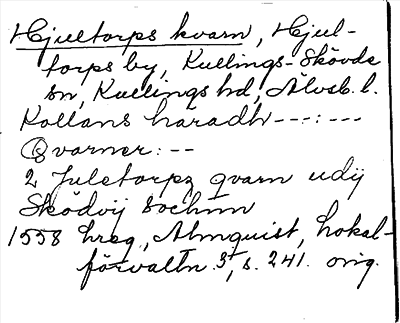 Hjultorps kvarn, Hjul-
torps by, Kullings-Skövde
sn, Kullings hd, Älvsb. l.
Kollans haradh ---:---
Qvarner: --
2 Juletorpz qvarn udij
Sködvij sochnn
1558 hreg., Almquist, Lokal-
förvaltn. 3, s. 241. orig.